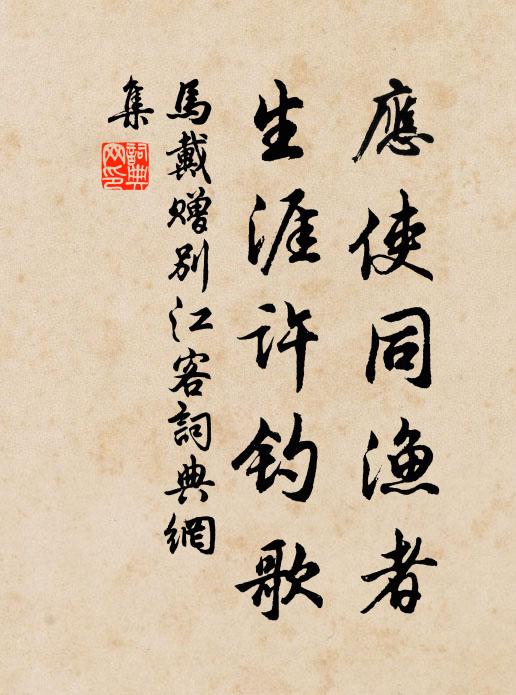 應使同漁者
生涯許釣歌
馬戴贈別江客詞典網
集
詞典
网印